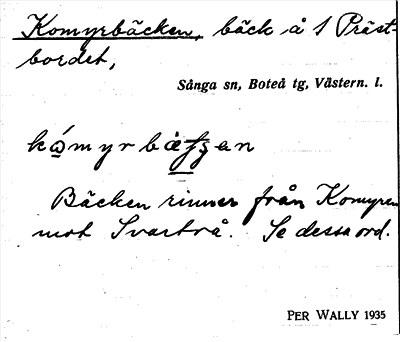 Komyrbäcken, bäck å 1 Präst-
bordet,
Sånga sn, Boteå tg, Västern. l.
Bäcken rinner från Komyren
mot Svartvå. Se dessa ord.
PER WALLY 1935